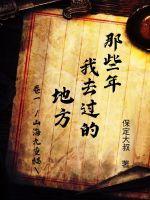 那些年
我去过的
地方
卷一／山海九章幡＼
保定大叔 著